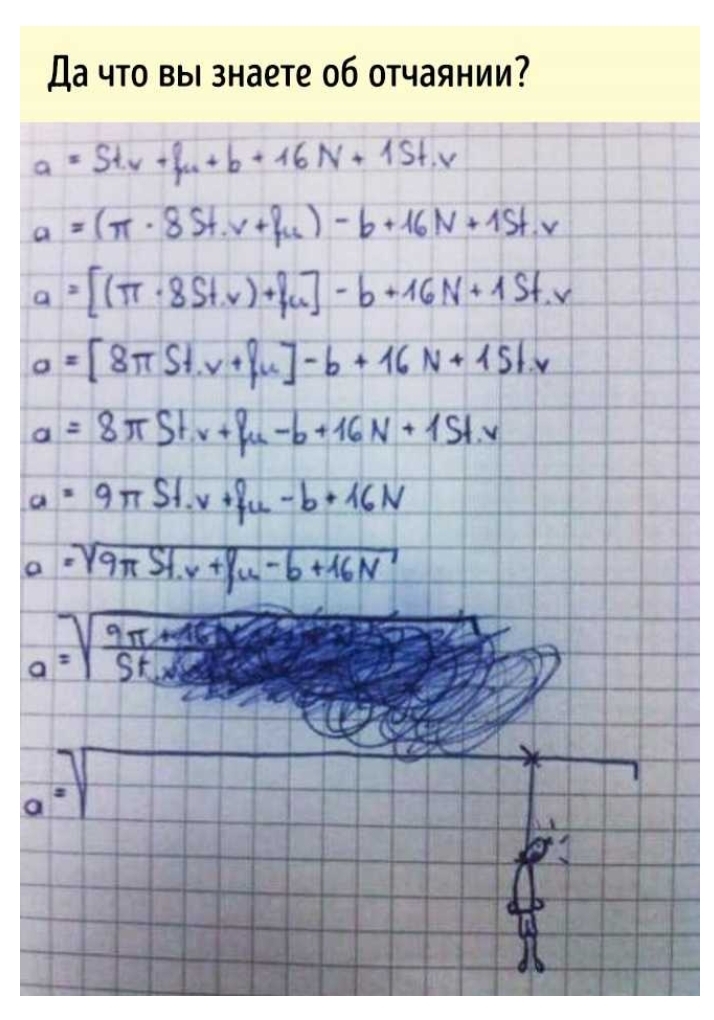 Да что вы знаете об отчаянии?
a = St.v + fu + b + 16N + 1St.v
a = (π · 8St.v + fu) - b + 16N + 1St.v
a = [(π · 8St.v) + fu] - b + 16N + 1St.v
a = [8π St.v + fu] - b + 16N + 1St.v
a = 8π St.v + fu - b + 16N + 1St.v
a = 9π St.v + fu - b + 16N
a = √9π St.v + fu - b + 16N
a = √9π + 16
St.
a = √